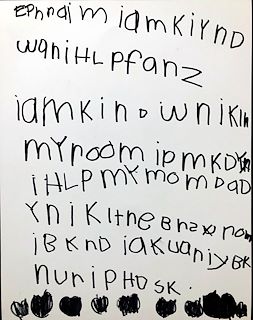 EPhraim iamKiYnD
waniHLPfanz
iamKinD wniKln
mYroom ipmKDYn
iHLP mY momDaD
YniK
iBKnD iaKwaniyBK
nuriPHDSK.